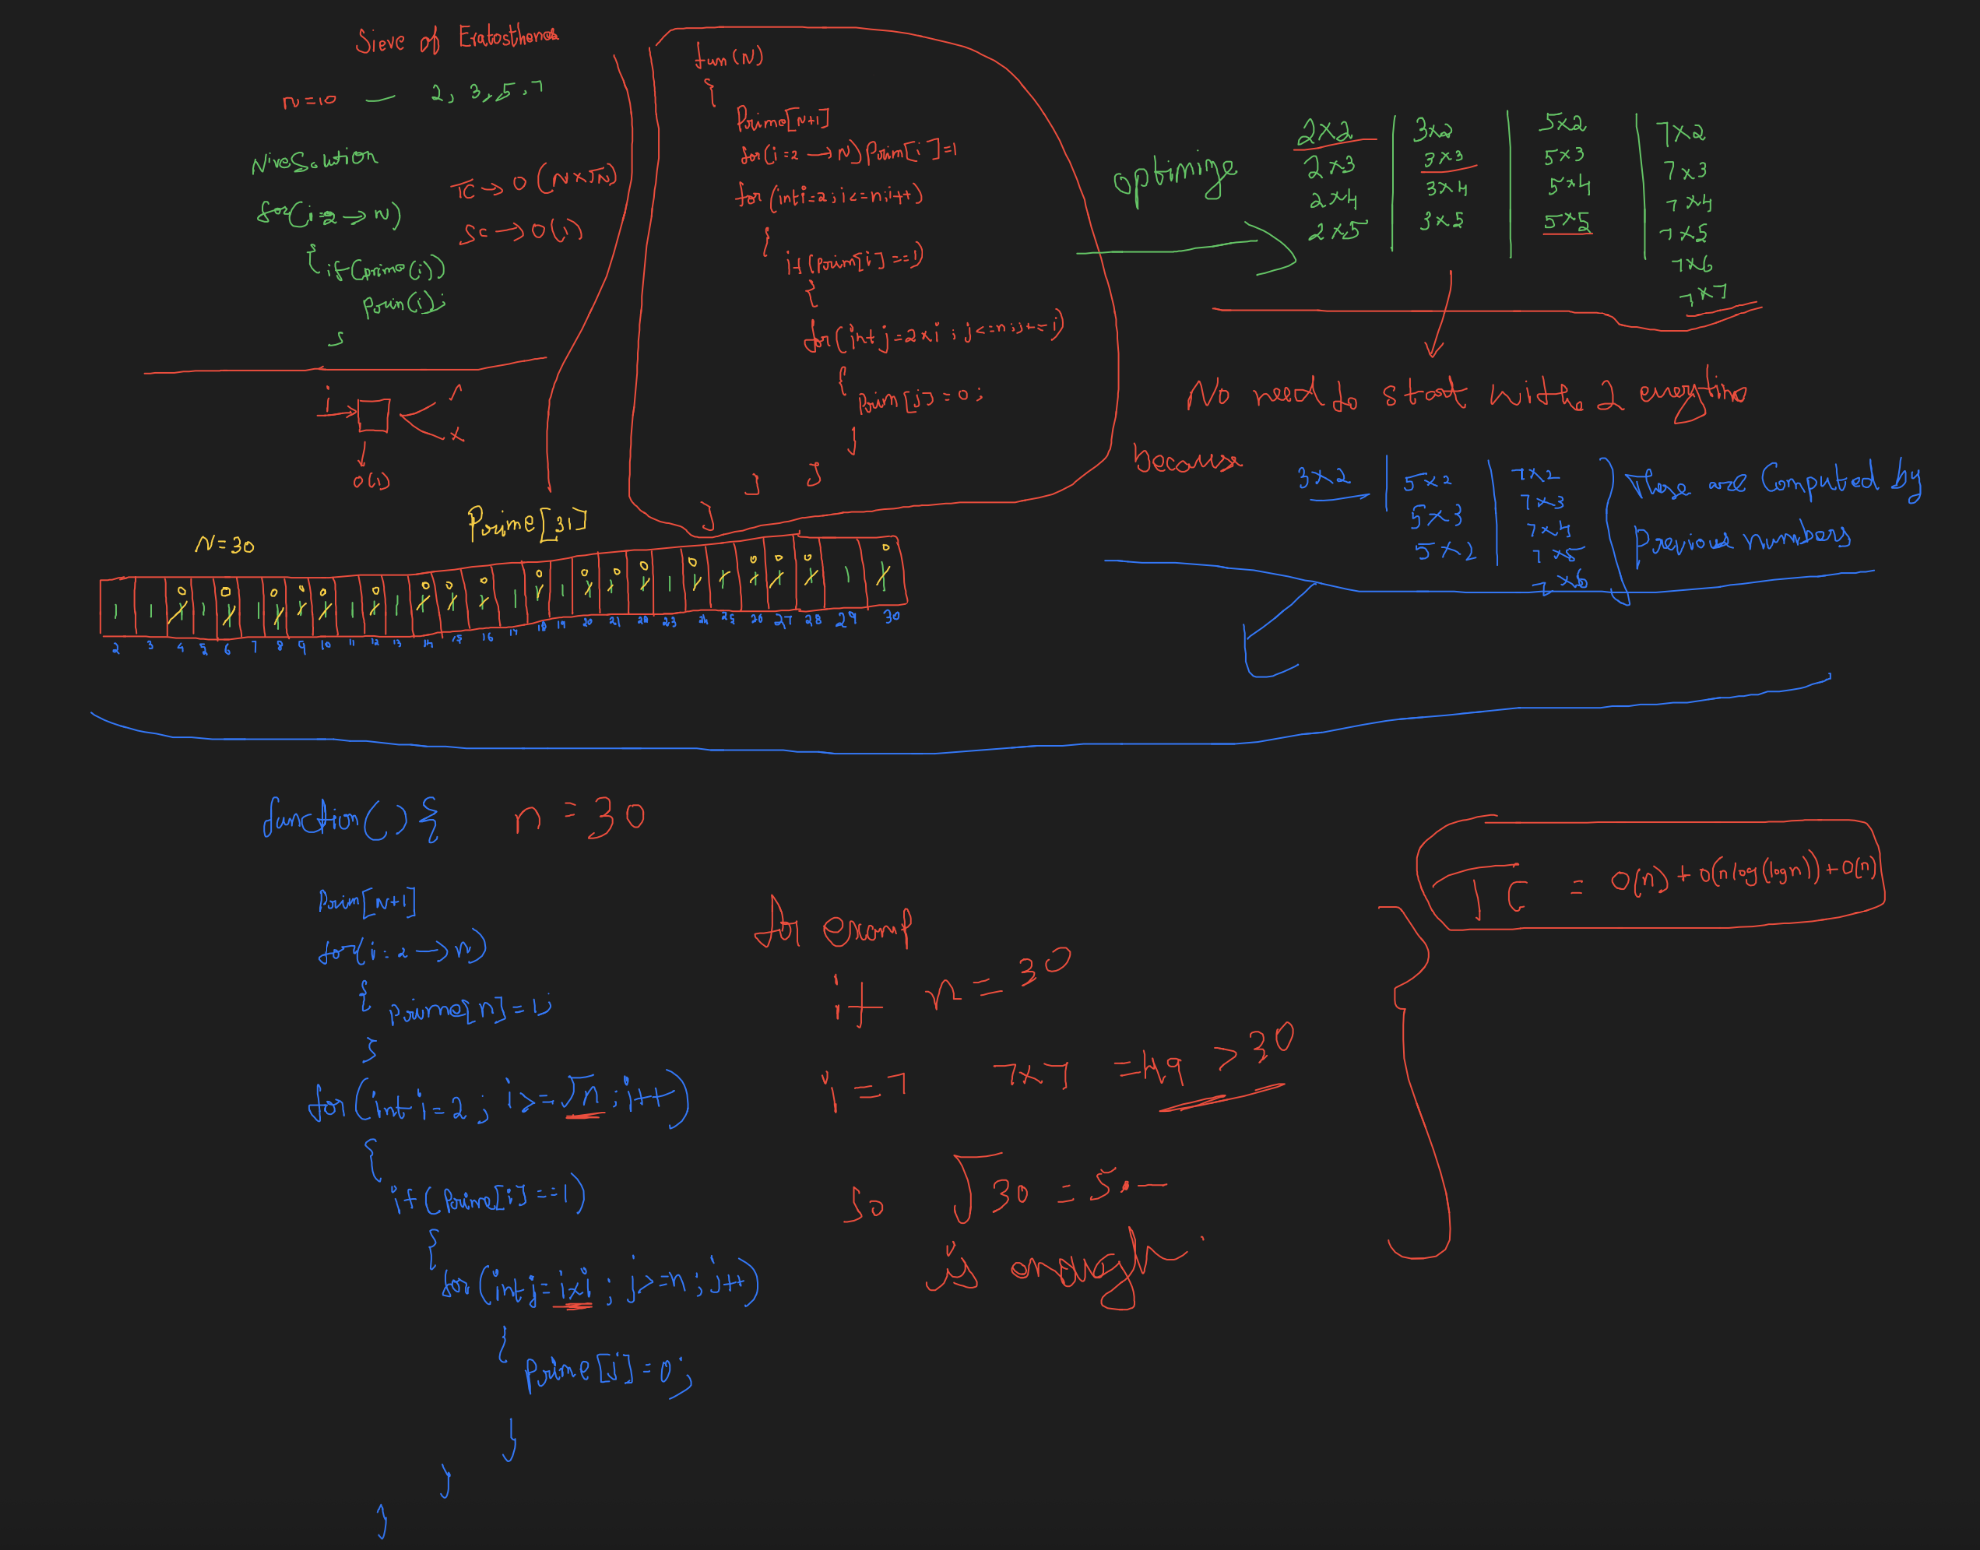 Sieve of Eratosthenes
n=10 — 2, 3, 5, 7
Nive Solution
for(i=2→N)
{ if(prime(i))
Prin(i);
}
TC → O(N×√N)
SC → O(1)
i
x
O(1)
fun(N)
{
Prime[N+1]
for(i=2→N) Prim[i]=1
for(int i=2; i<=n; i++)
{
if(Prim[i]==1)
{
for(int j=2×i; j<=n; j+=i)
{
Prim[j]=0;
}
}
}
}
optimize
2×2 3×2 5×2 7×2
2×3 3×3 5×3 7×3
2×4 3×4 5×4 7×4
2×5 3×5 5×5 7×5
7×6
7×7
No need to start with 2 everytime
because
3×2 5×2 7×2
5×3 7×3
5×2 7×4
7×5
7×6
These are Computed by
Previous numbers
N=30 Prime[31]
1 1 0 1 0 1 0 0 0 1 0 1 0 0 0 1 0 1 0 0 0 1 0 0 0 0 1 0
2 3 4 5 6 7 8 9 10 11 12 13 14 15 16 17 18 19 20 21 22 23 24 25 26 27 28 29 30
function() { n=30
Prim[N+1]
for(i=2→n)
{ prime[n]=1;
}
for(int i=2; i>=√n; i++)
{
if(Prime[i]==1)
{
for(int j=i×i; j>=n; j++)
{
Prime[j]=0;
}
}
}
for examp
if n=30
i=7 7×7 =49 >30
so √30 =5.—
is enough.
TC = O(n)+O(nlog(logn))+O(n)